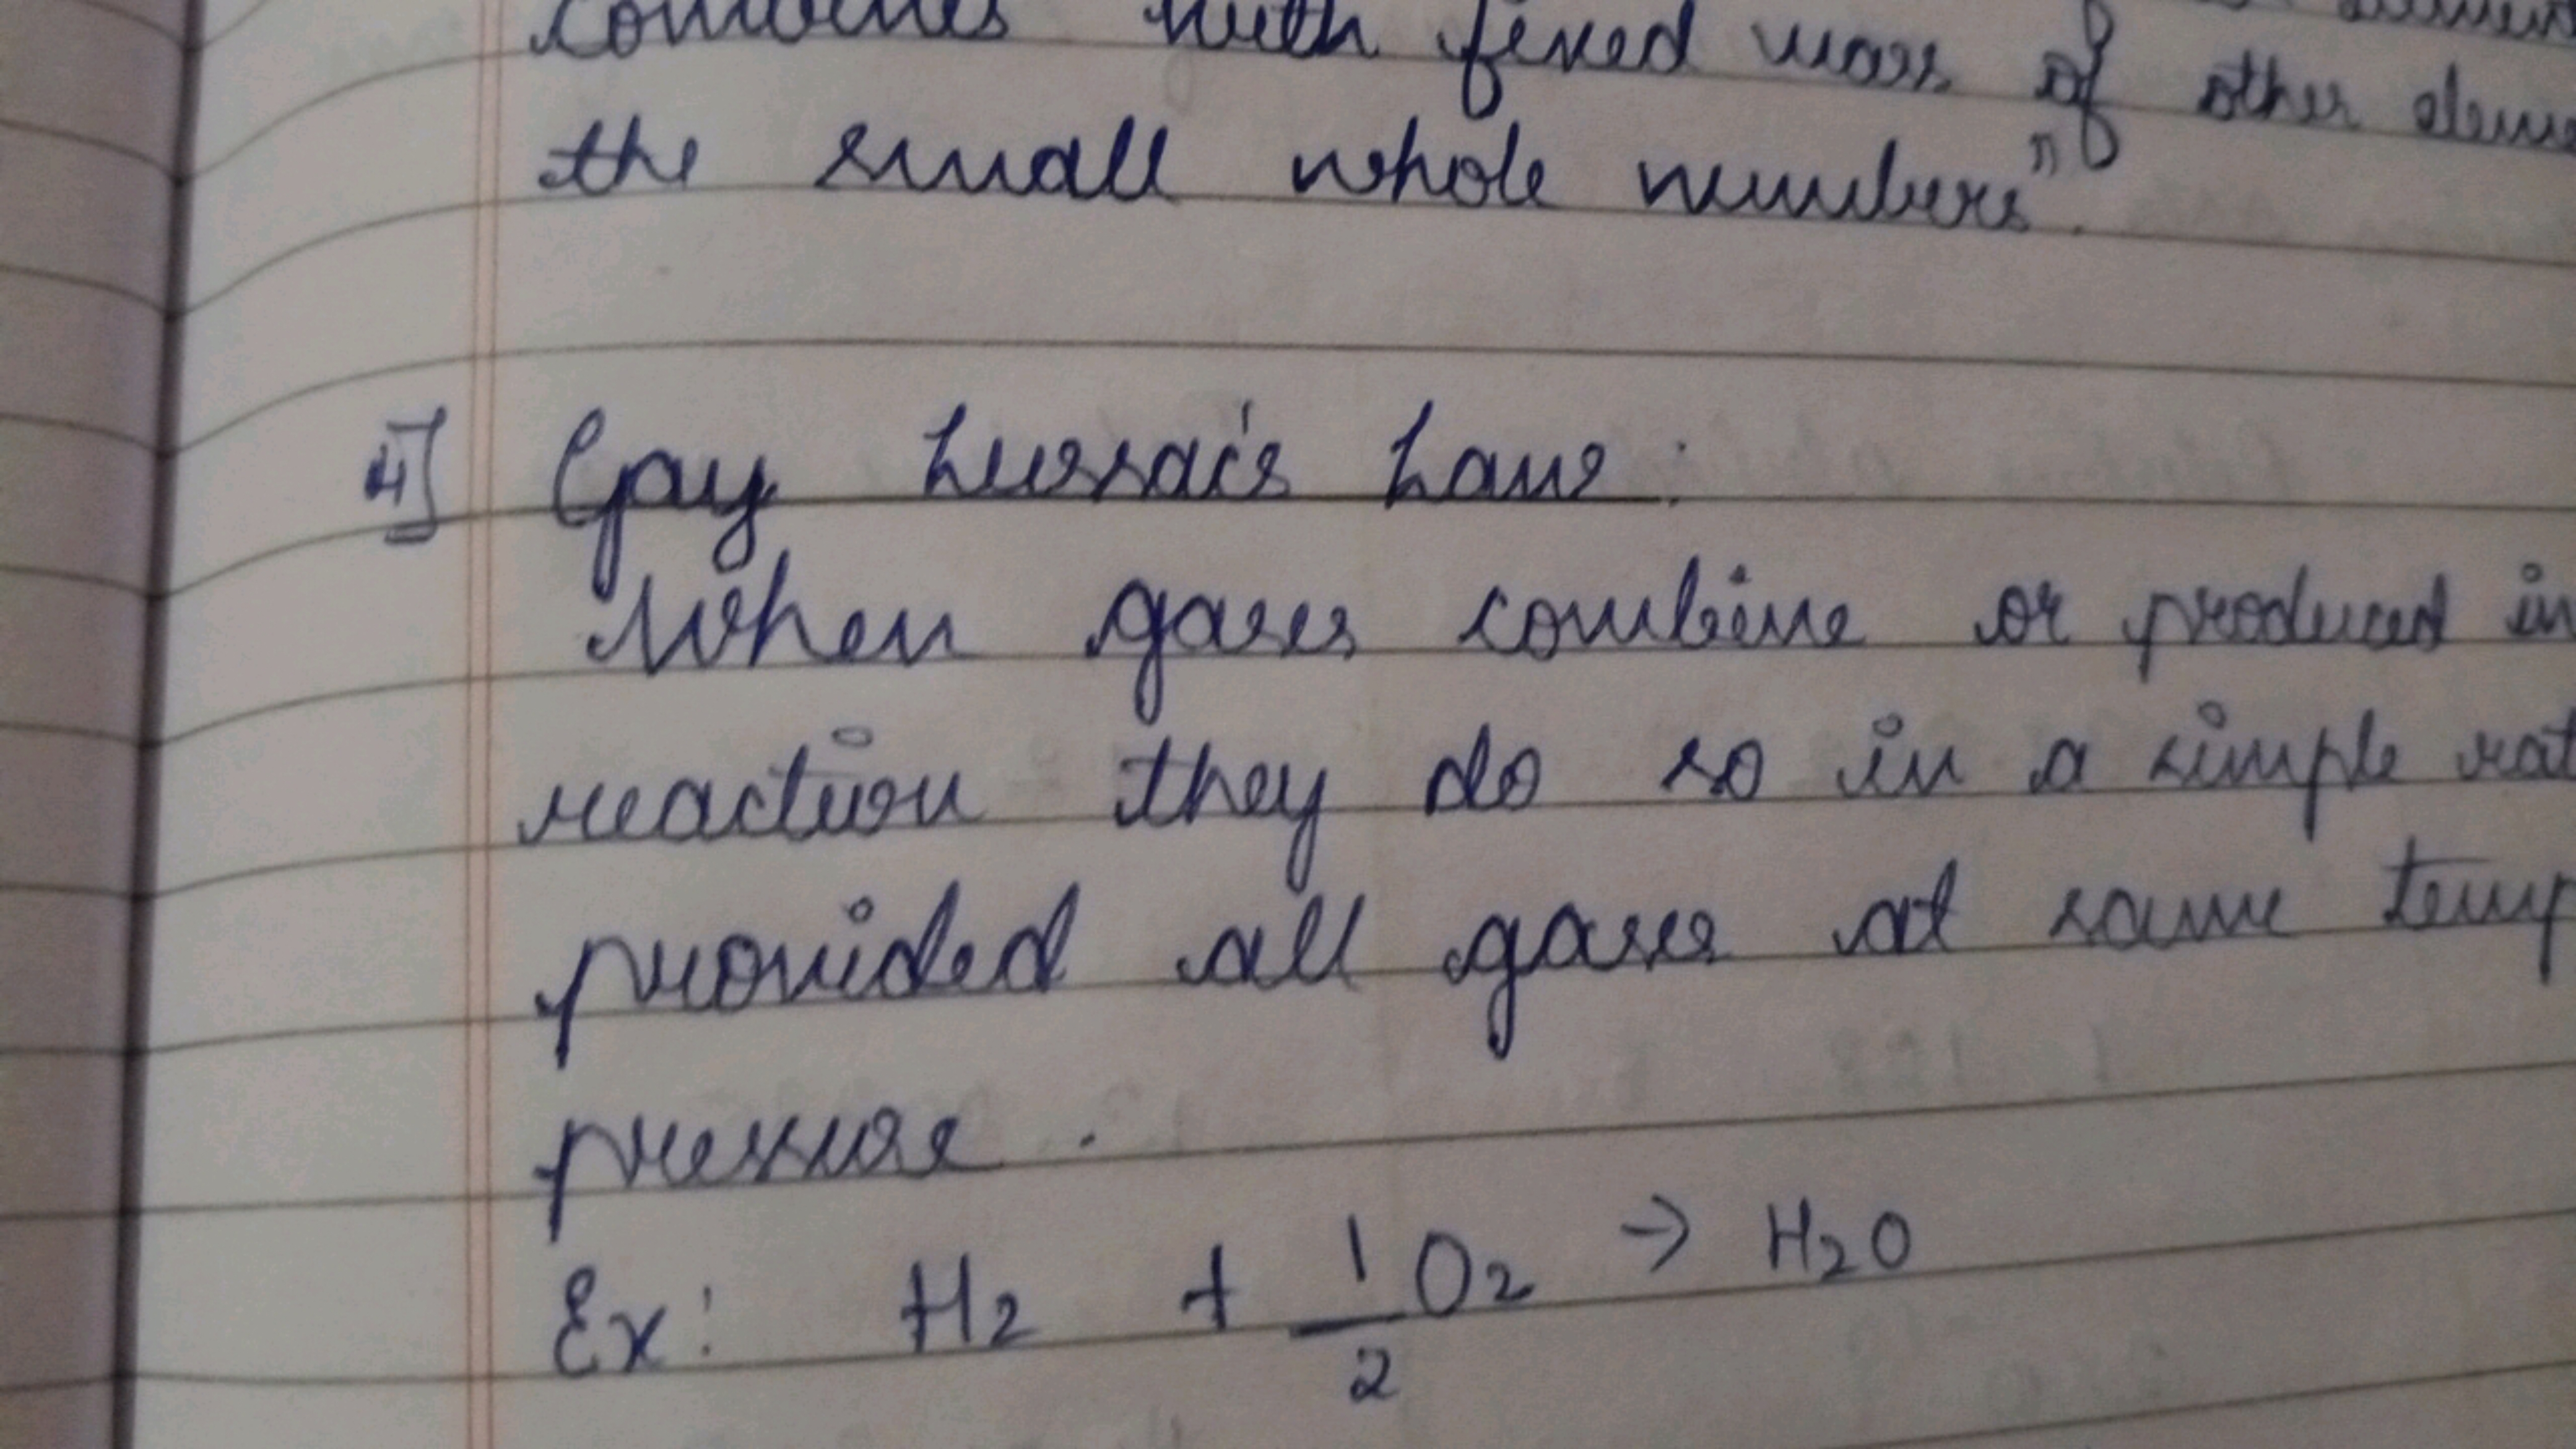 combines with fixed mass of other
the small whole numbers".
4] Gay Lussac's Law:
When gases combine or produced in
reaction they do so in a simple
provided all gases at same temp
pressure.
Ex: H₂ + 1/2 O₂ → H₂O